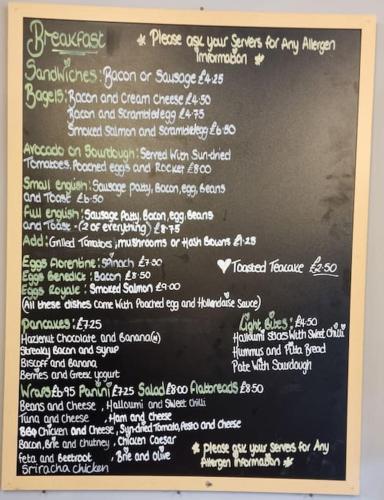 Breakfast
* Please ask your Servers for Any Allergen
Information *
Sandwiches: Bacon or Sausage £4.25
Bagels: Bacon and Cream Cheese £4.50
Bacon and Scrambledegg £4.75
Smoked Salmon and Scrambledegg £6.50
Avocado on Sourdough: Served With Sun-dried
Tomatoes, Poached eggs and Rocket £8.00
Small english: Sausage patty, Bacon, egg, Beans
and Toast £6.50
Full english: Sausage Patty, Bacon, egg, Beans
and Toast - (2 of everything) £8.75
Add: Grilled Tomatoes, mushrooms or Hash Browns £1.25
Eggs Florentine: Spinach £7.50
Eggs Benedict: Bacon £8.50
Eggs Royale: Smoked Salmon £9.00
(All these dishes Come With Poached egg and Hollandaise Sauce)
Toasted Teacake £2.50
Pancakes: £7.25
Hazelnut Chocolate and Banana(n)
Streaky Bacon and Syrup
Biscoff and Banana
Berries and Greek yogurt
Light Bites: £4.50
Halloumi Slices With Sweet Chilli
Hummus and Pitta Bread
Pate With Sourdough
Wraps £6.95 Panini £7.25 Salad £8.00 flatbreads £8.50
Beans and Cheese, Halloumi and Sweet Chilli
Tuna and Cheese, Ham and Cheese
BBQ Chicken and Cheese, Sundried Tomato, Pesto and Cheese
Bacon, Brie and chutney, Chicken Caesar
Feta and Beetroot, Brie and Olive
Sriracha chicken
* Please ask your Servers for Any
Allergen information *